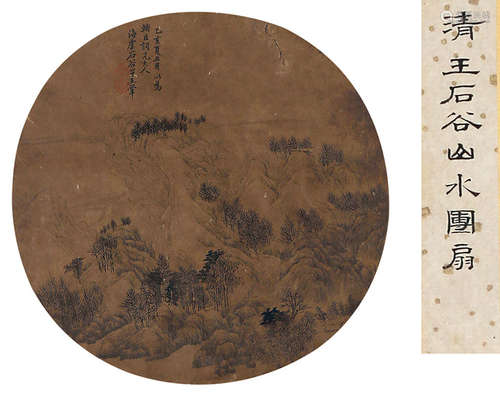 乙亥夏五月以為
海虞石谷子王翬
清王石谷山水團扇